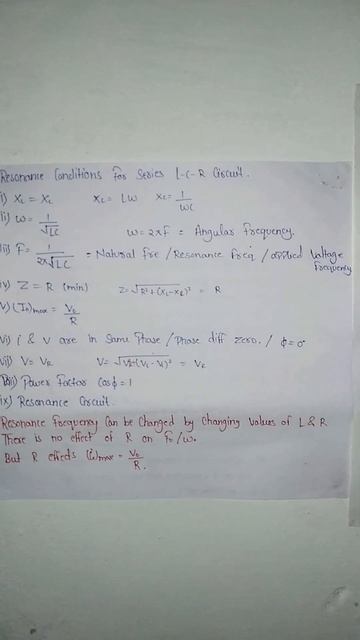 Resonance Conditions for Series L-C-R Circuit.
i) XL = XL XL = LW XC = 1/WC
ii) ω = 1/√LC ω = 2πF = Angular frequency.
iii) F = 1/2π√LC = Natural fre / Resonance freq / applied Voltage frequency
iv) Z = R (min) Z = √R²+(XL-XC)² = R
v) (I0)max = V0/R
vi) i & V are in Same Phase / Phase diff zero. / ϕ=0°
vii) V = VR = VR
viii) Power factor Cosϕ = 1
ix) Resonance Circuit.
Resonance frequency Can be Changed by Changing Values of L & R
There is no effect of R on F0/ω.
But R effects (i0)max = V0/R.